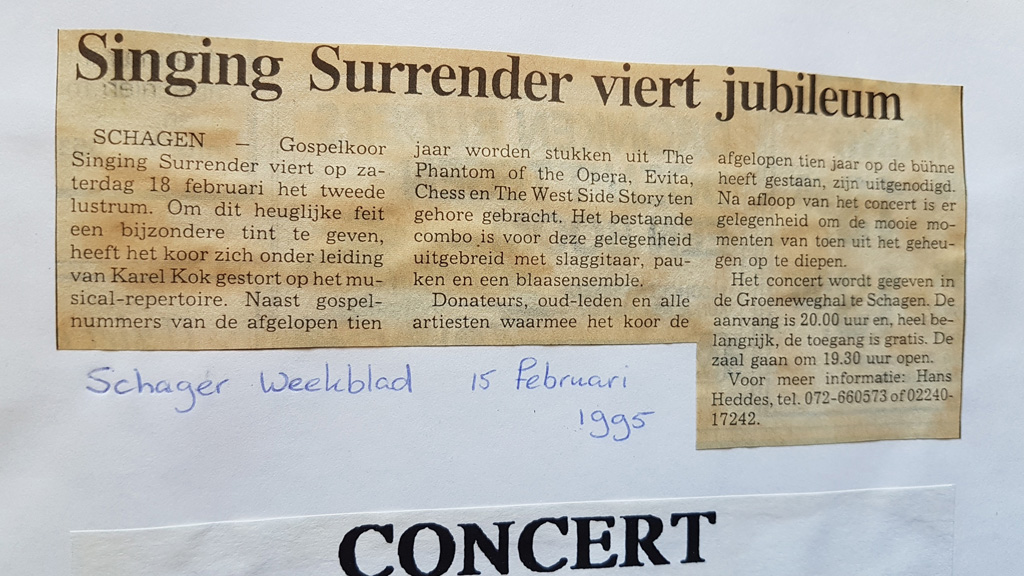 Singing Surrender viert jubileum
SCHAGEN – Gospelkoor
Singing Surrender viert op za-
terdag 18 februari het tweede
lustrum. Om dit heuglijke feit
een bijzondere tint te geven,
heeft het koor zich onder leiding
van Karel Kok gestort op het mu-
sical-repertoire. Naast gospel-
nummers van de afgelopen tien
jaar worden stukken uit The
Phantom of the Opera, Evita,
Chess en The West Side Story ten
gehore gebracht. Het bestaande
combo is voor deze gelegenheid
uitgebreid met slaggitaar, pau-
ken en een blaasensemble.
Donateurs, oud-leden en alle
artiesten waarmee het koor de
afgelopen tien jaar op de bühne
heeft gestaan, zijn uitgenodigd.
Na afloop van het concert is er
gelegenheid om de mooie mo-
menten van toen uit het geheu-
gen op te diepen.
Het concert wordt gegeven in
de Groeneweghal te Schagen. De
aanvang is 20.00 uur en, heel be-
langrijk, de toegang is gratis. De
zaal gaan om 19.30 uur open.
Voor meer informatie: Hans
Heddes, tel. 072-660573 of 02240-
17242.
Schager Weekblad 15 Februari
1995
CONCERT